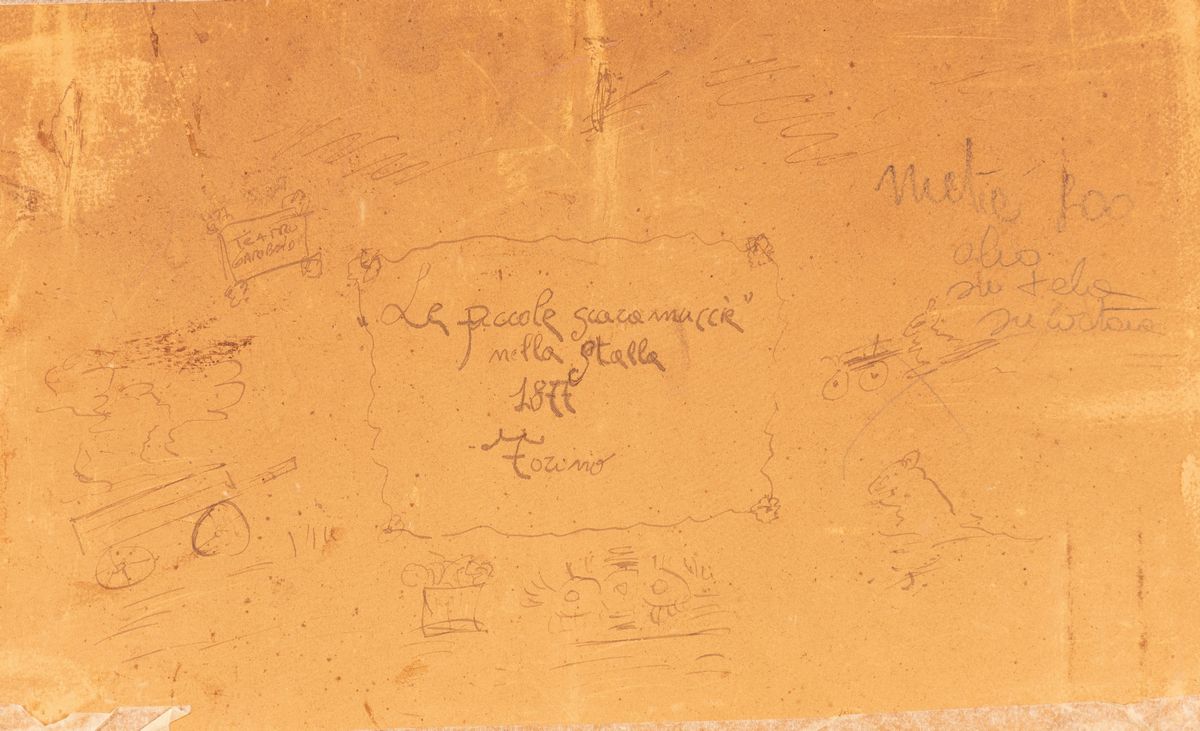 TEATRO
Le piccole scaramuccie"
nella stalla
1877
Torino
metà
olio
su tela
su cartone